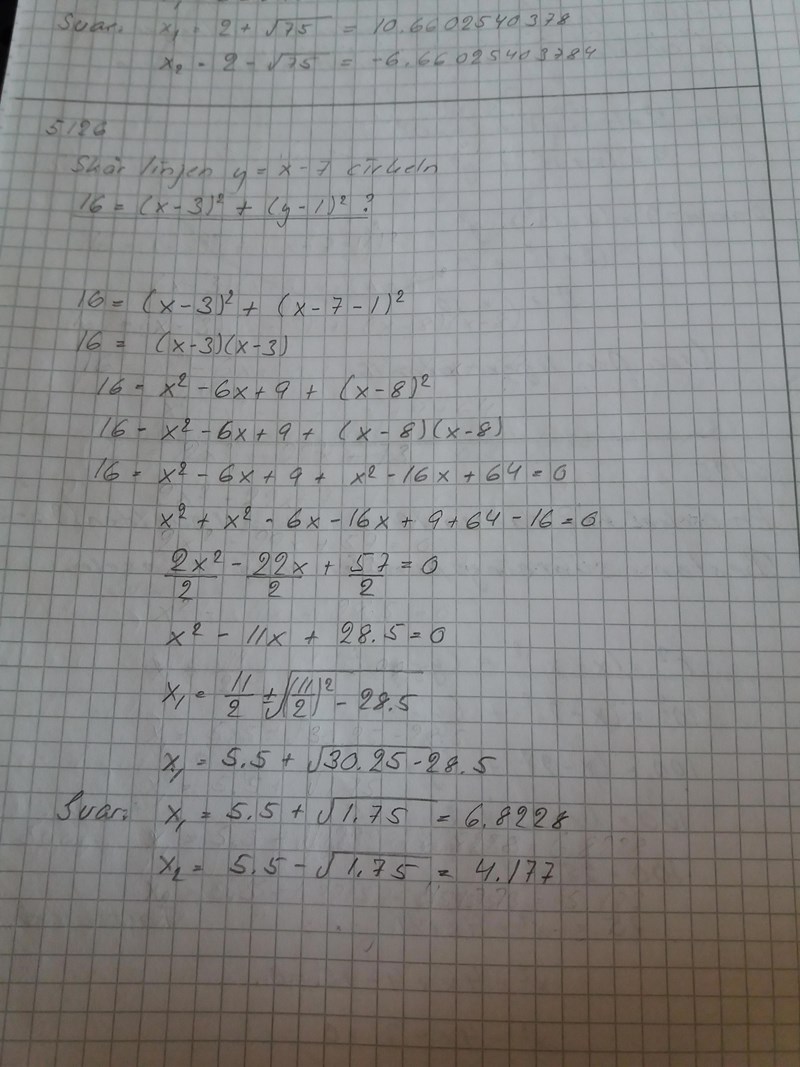 Svar: x₁ = 2 + √75 = 10.6602540378
x₂ = 2 - √75 = -6.66025403784
5126
Skär linjen y = x - 7 cirkeln
16 = (x-3)² + (y-1)² ?
16 = (x-3)² + (x-7-1)²
16 = (x-3)(x-3)
16 = x² - 6x + 9 + (x-8)²
16 = x² - 6x + 9 + (x-8)(x-8)
16 = x² - 6x + 9 + x² - 16x + 64 = 0
x² + x² - 6x - 16x + 9 + 64 - 16 = 0
2x²/2 - 22x/2 + 57/2 = 0
x² - 11x + 28.5 = 0
x₁ = 11/2 ± √(11/2)² - 28.5
x₁ = 5.5 + √30.25 - 28.5
Svar: x₁ = 5.5 + √1.75 = 6.8228
x₂ = 5.5 - √1.75 = 4.177